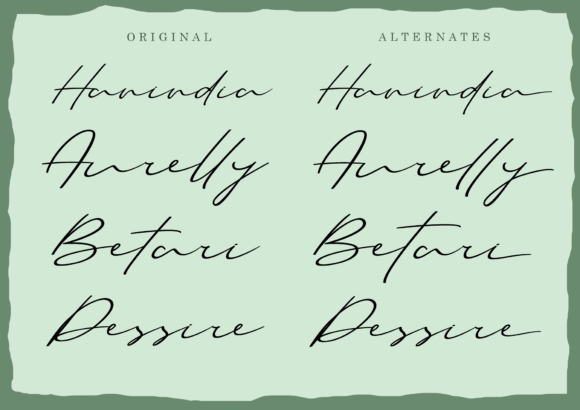 ORIGINAL ALTERNATES
Hanindia Hanindia
Aurelly Aurelly
Betari Betari
Dessire Dessire